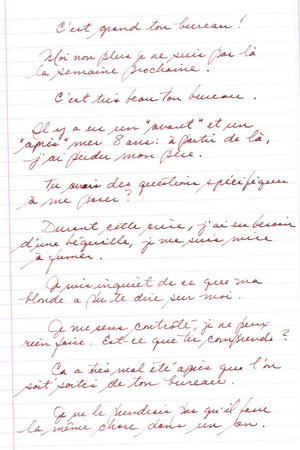 C'est grand ton bureau !
Moi non plus je ne suis pas là
la semaine prochaine.
C'est très beau ton bureau.
Il y a eu un "avant" et un
"après" mes 8 ans : à partir de là,
j'ai perdu mon père.
Tu avais des questions spécifiques
à me poser ?
Durant cette crise, j'ai eu besoin
d'une béquille, je me suis mise
à fumer.
Je suis inquiet de ce que ma
blonde a pu te dire sur moi.
Je me sens contrôlé, je ne peux
rien faire. Est-ce que tu comprends ?
Ca a très mal été après que l'on
soit sortis de ton bureau.
Je ne le prendrais pas qu'il fasse
la même chose dans un an.